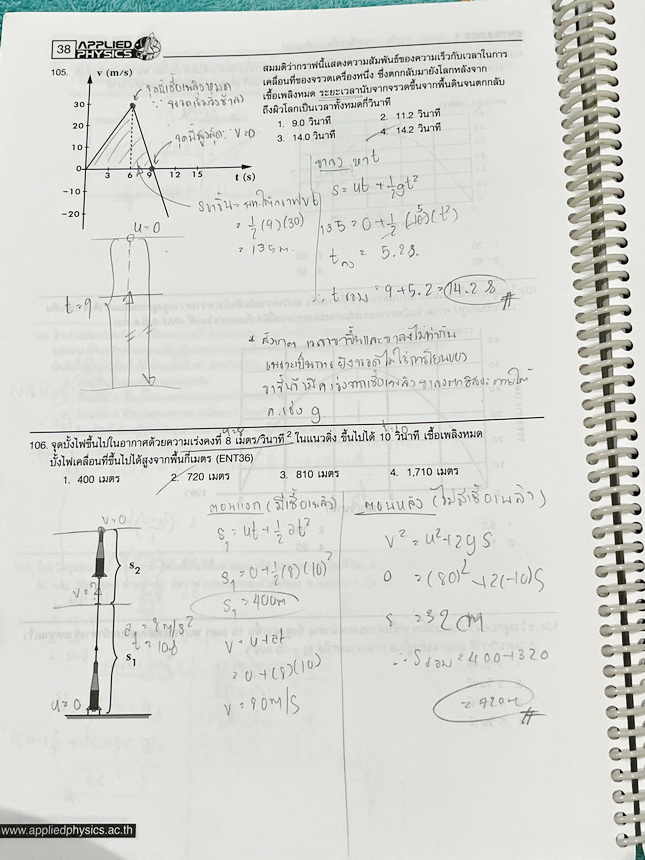 38 APPLIED PHYSICS
105.
v (m/s)
30
20
10
0
-10
-20
3 6 9 12 15
t (s)
สมมติว่ากราฟนี้แสดงความสัมพันธ์ของความเร็วกับเวลาในการ
เคลื่อนที่ของจรวดเครื่องหนึ่ง ซึ่งตกกลับมายังโลกหลังจาก
เชื้อเพลิงหมด ระยะเวลานับจากจรวดขึ้นจากพื้นดินจนตกกลับ
ถึงผิวโลกเป็นเวลาทั้งหมดกี่วินาที
1. 9.0 วินาที 2. 11.2 วินาที
3. 14.0 วินาที 4. 14.2 วินาที
จุดที่เชื้อเพลิงหมด
จุดที่สูงสุด : v=0
S ขาขึ้น = พท.ใต้กราฟ vt
= ½(9)(30)
= 135 m.
u=0
t=9
ขาลง หา t
s = ut + ½gt²
135 = 0 + ½(10)(t²) 5
t ลง = 5.2 s.
∴ t รวม = 9+5.2 = 14.2 s #
* สังเกต เวลาขาขึ้นและขาลงไม่เท่ากัน
เพราะเป็นการยิงจรวดไม่ใช่การโยนของ
ค.เร่ง g
106. จุดบั้งไฟขึ้นไปในอากาศด้วยความเร่งคงที่ 8 เมตร/วินาที² ในแนวดิ่ง ขึ้นไปได้ 10 วินาที เชื้อเพลิงหมด
บั้งไฟเคลื่อนที่ขึ้นไปได้สูงจากพื้นกี่เมตร (ENT36)
1. 400 เมตร 2. 720 เมตร 3. 810 เมตร 4. 1,710 เมตร
v=0
s₂
v=?
a = 8 m/s²
t = 10s
s₁
u=0
ตอนแรก (มีเชื้อเพลิง)
s₁ = ut + ½at²
s₁ = 0 + ½(8)(10)²
s₁ = 400m
v = u+at
= 0+(8)(10)
v = 80m/s
ตอนหลัง (ไม่มีเชื้อเพลิง)
v² = u²+2gs
0 = (80)²+2(-10)s
s = 320 m
∴ s รวม = 400+320
= 720m #
www.appliedphysics.ac.th